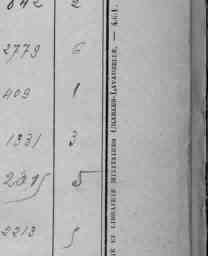 842 2
2779 6
409 1
1331 3
2015 5
2213 5
IE ET LIBRAIRIE MILITAIRES CHARLES-LAVAUZELLE. — 4.G.I.